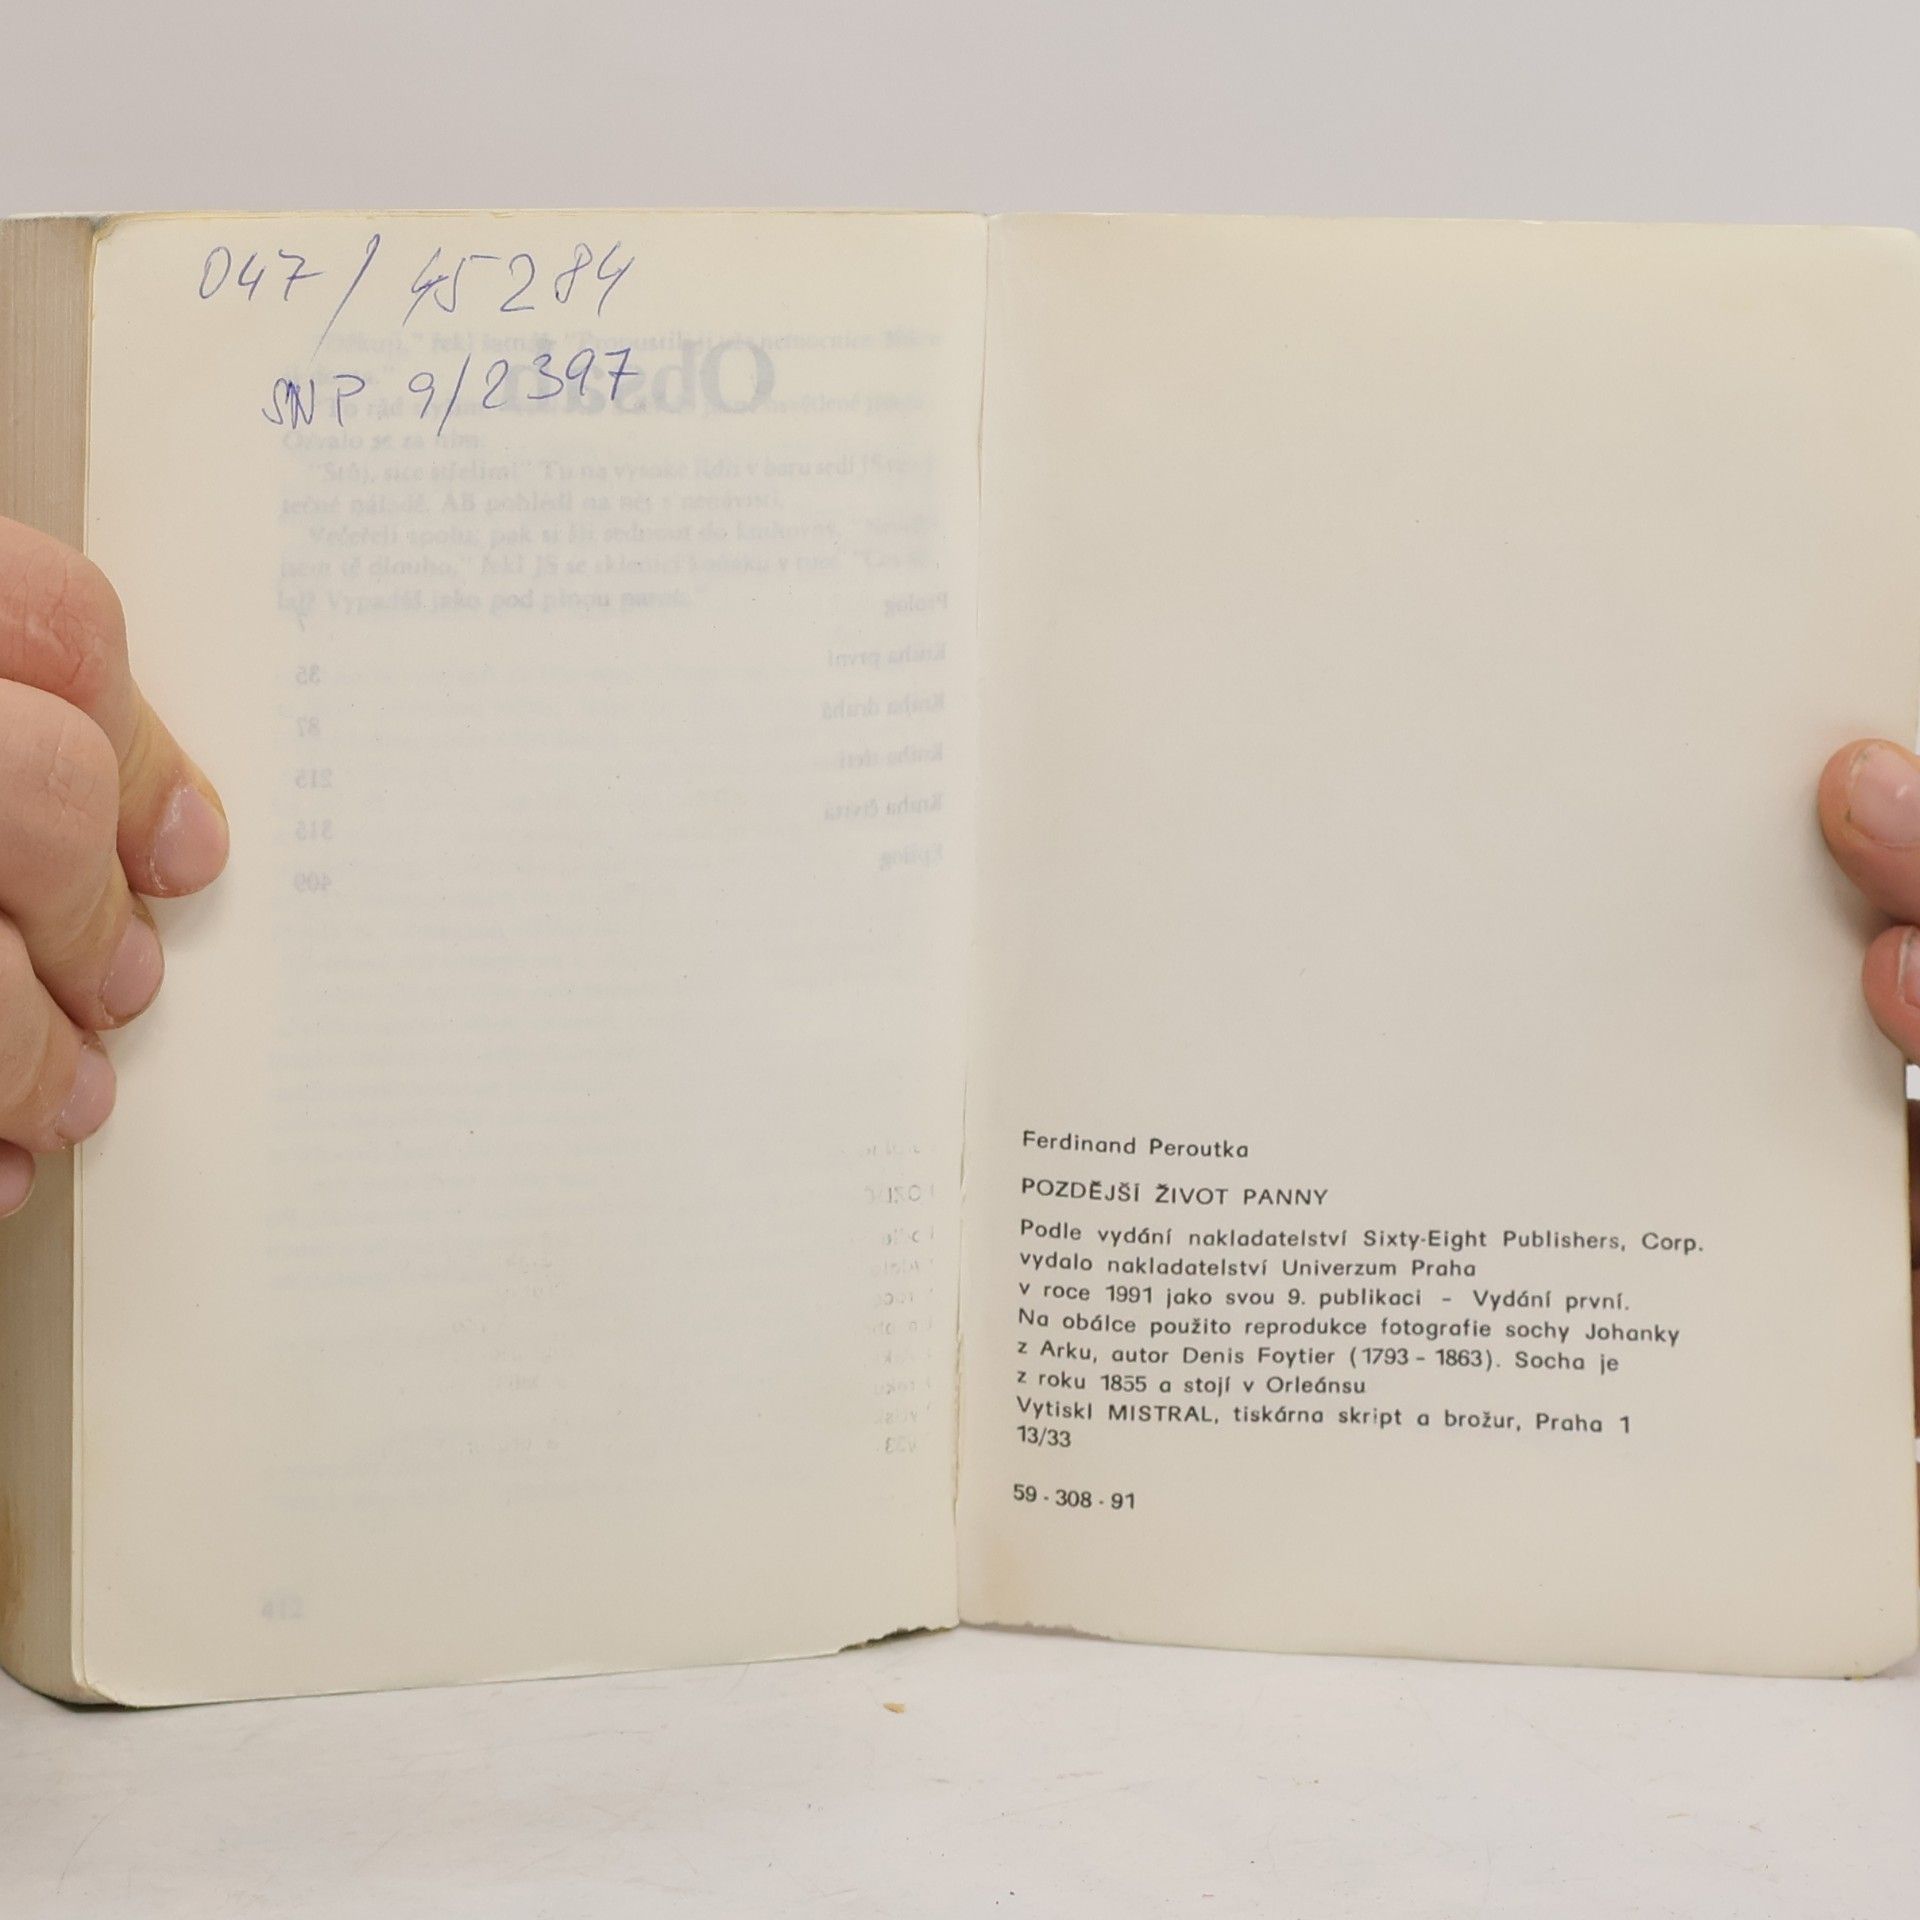 047/45284
SNP 9/2397
Obsah
Prolog 7
Kniha první 35
Kniha druhá 87
Kniha třetí 215
Kniha čtvrtá 315
Epilog 409
412
Ferdinand Peroutka
POZDĚJŠÍ ŽIVOT PANNY
Podle vydání nakladatelství Sixty-Eight Publishers, Corp.
vydalo nakladatelství Univerzum Praha
v roce 1991 jako svou 9. publikaci – Vydání první.
Na obálce použito reprodukce fotografie sochy Johanky
z Arku, autor Denis Foytier (1793 – 1863). Socha je
z roku 1855 a stojí v Orleánsu
Vytiskl MISTRAL, tiskárna skript a brožur, Praha 1
13/33
59 - 308 - 91